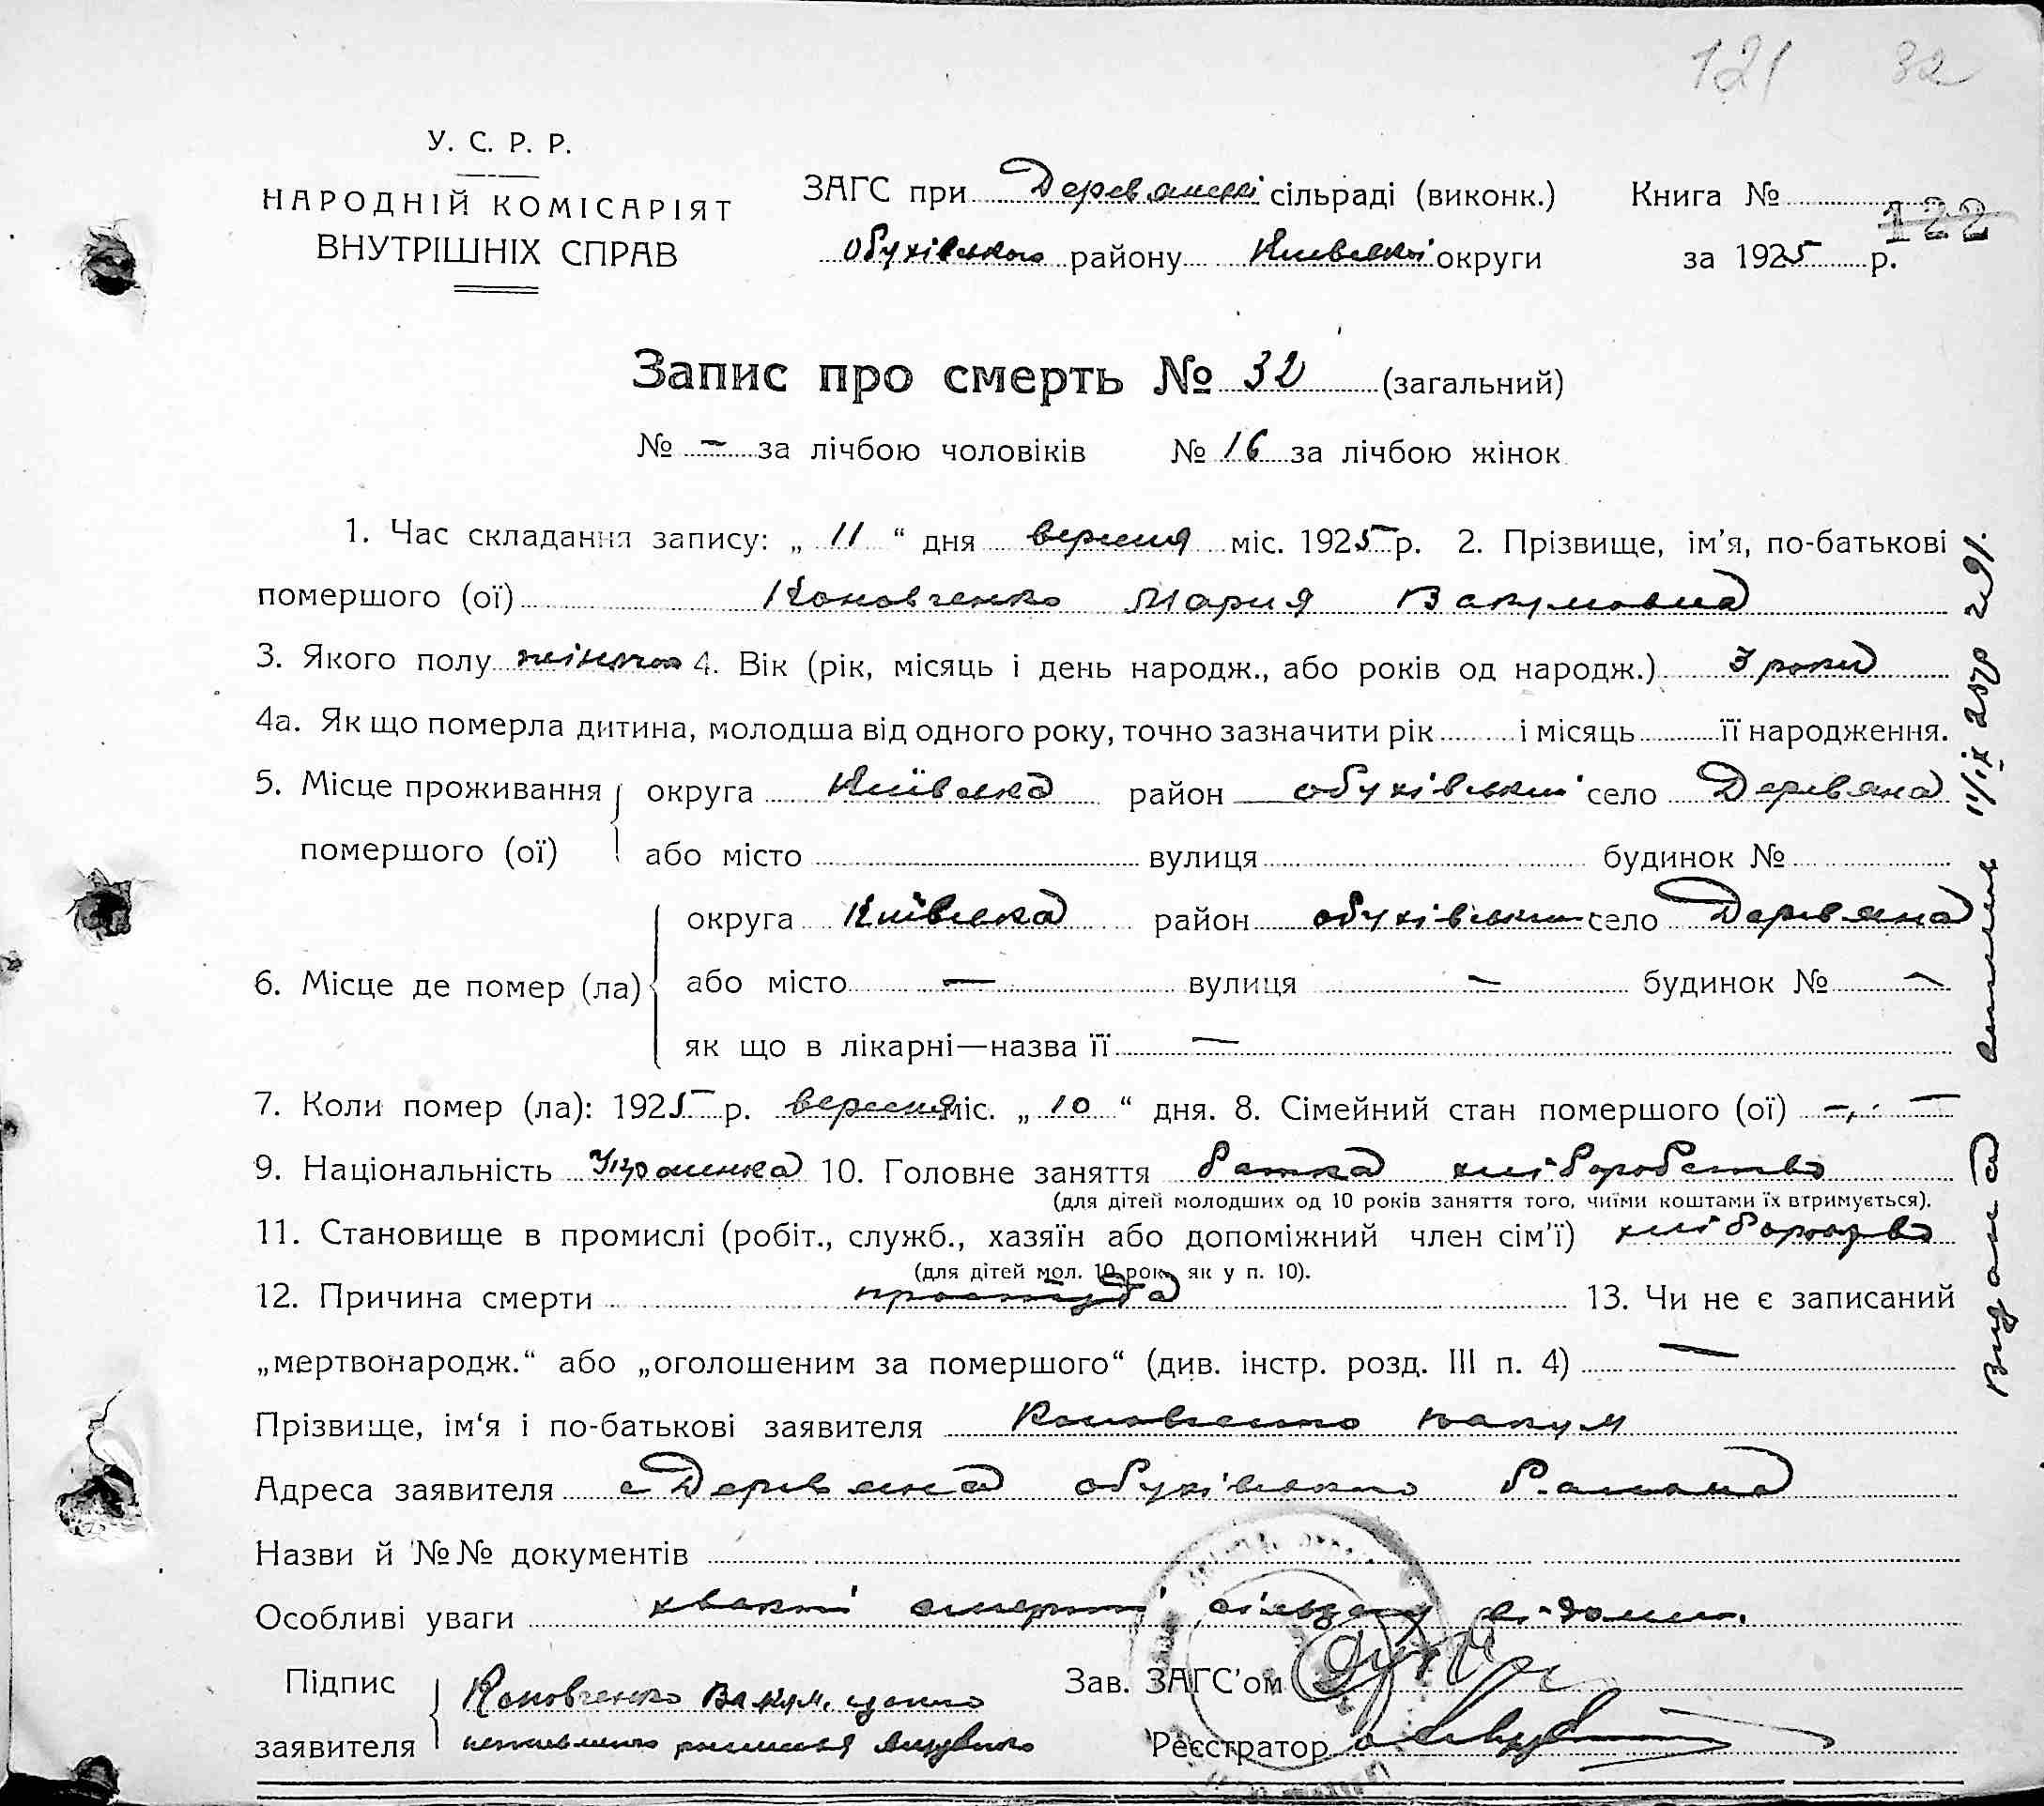 121 32
У. С. Р. Р.
НАРОДНІЙ КОМІСАРІЯТ
ВНУТРІШНІХ СПРАВ
ЗАГС при Деревянській сільраді (виконк.) Книга №
122
Обухівського району Київської округи за 1925 р.
Запис про смерть № 32 (загальний)
№ — за лічбою чоловіків № 16 за лічбою жінок
1. Час складання запису: „ 11 “ дня вересня міс. 1925 р. 2. Прізвище, ім’я, по-батькові
помершого (ої) Коновченко Мария Вакумовна
3. Якого полу жіночого 4. Вік (рік, місяць і день народж., або років од народж.) 3 роки
4а. Як що померла дитина, молодша від одного року, точно зазначити рік і місяць її народження.
5. Місце проживання округа Київська район обухівський село Деревяна
помершого (ої) або місто вулиця будинок №
округа Київська район обухівський село Деревяна
6. Місце де помер (ла) або місто — вулиця — будинок № —
як що в лікарні—назва її —
7. Коли помер (ла): 1925 р. вересня міс. „ 10 “ дня. 8. Сімейний стан помершого (ої) —
9. Національність Украинка 10. Головне заняття батка хліборобство
(для дітей молодших од 10 років заняття того, чиїми коштами їх втримується).
11. Становище в промислі (робіт., служб., хазяїн або допоміжний член сім’ї)
(для дітей мол. 10 рок. як у п. 10).
12. Причина смерти простуда 13. Чи не є записаний
„мертвонародж.“ або „оголошеним за помершого“ (див. інстр. розд. III п. 4) —
Прізвище, ім‘я і по-батькові заявителя Коновченко Вакум
Адреса заявителя с Деревяна обухівського Району
Назви й №№ документів
Особливі уваги смерти
Підпис Коновченко Вакум, Зав. ЗАГС’ом
заявителя Реєстратор